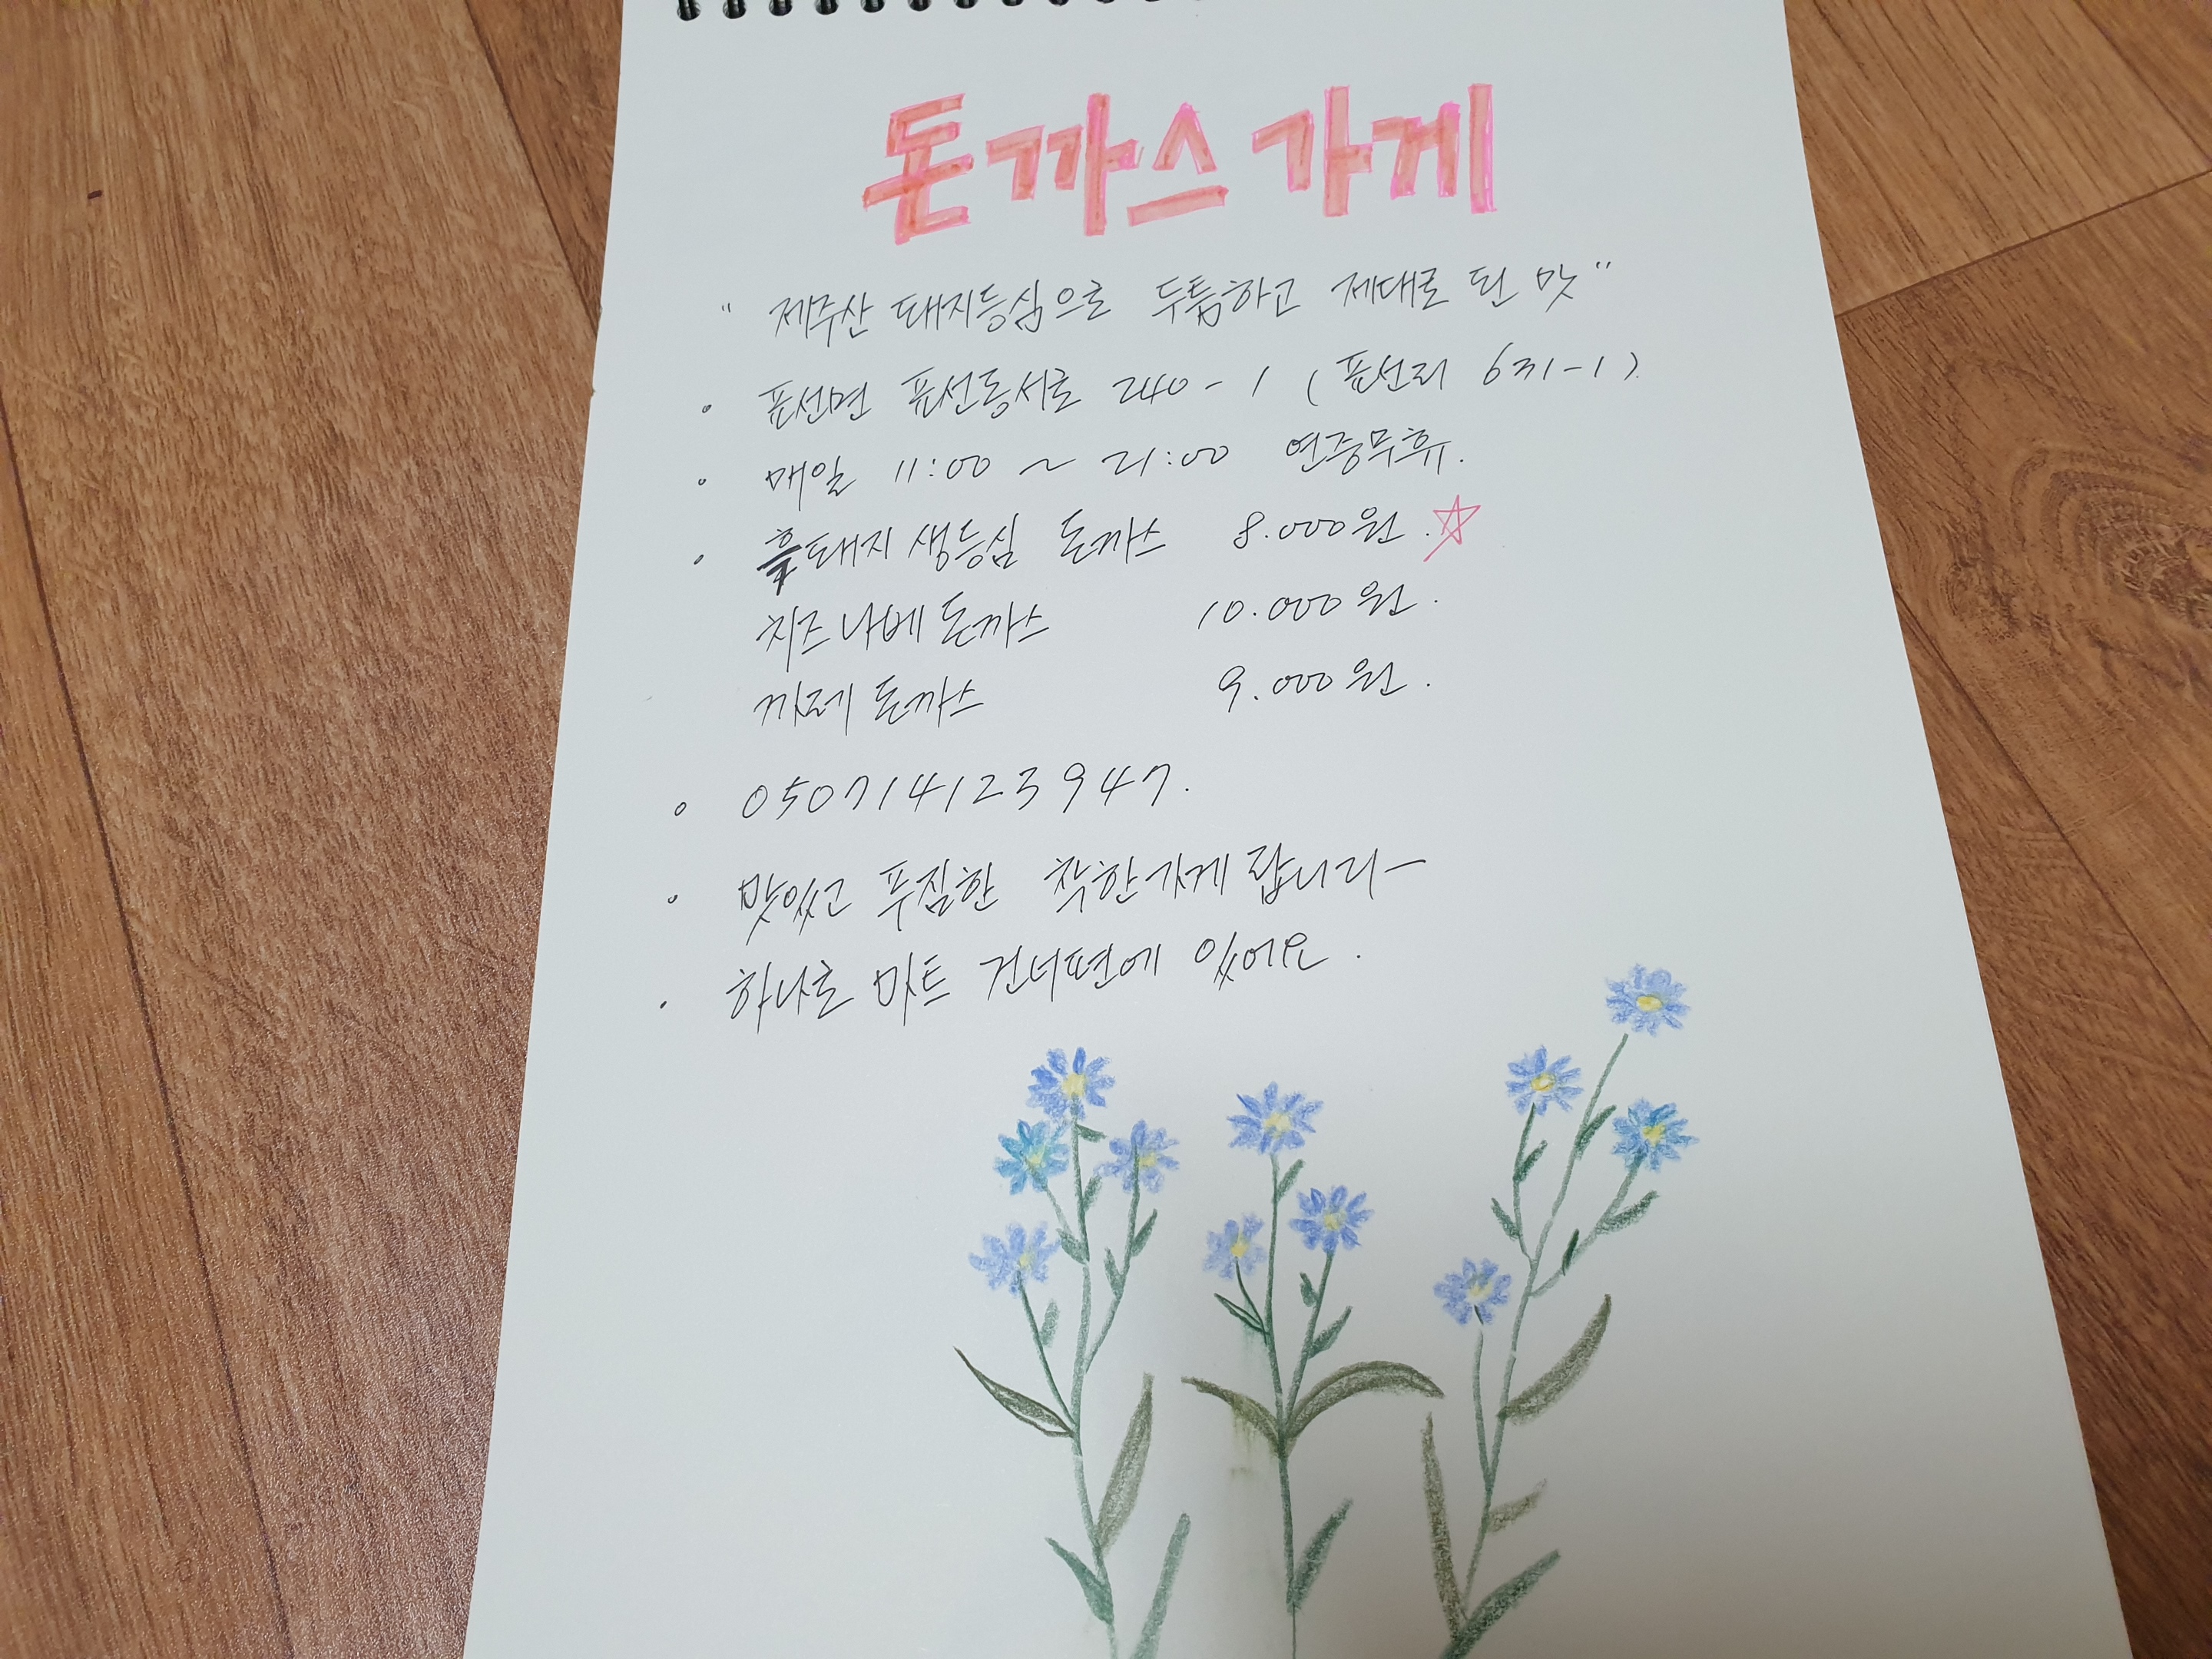 돈까스가게
" 제주산 돼지등심으로 두툼하고 제대로 된 맛 "
• 표선면 표선동서로 240-1 (표선리 631-1).
• 매일 11:00 ~ 21:00 연중무휴.
• 흑돼지 생등심 돈까스 8.000원.☆
치즈나베 돈까스 10.000원.
까레 돈까스 9.000원.
• 050714123947.
• 맛있고 푸짐한 착한가게 랍니다-
• 하나로 마트 건너편에 있어요.